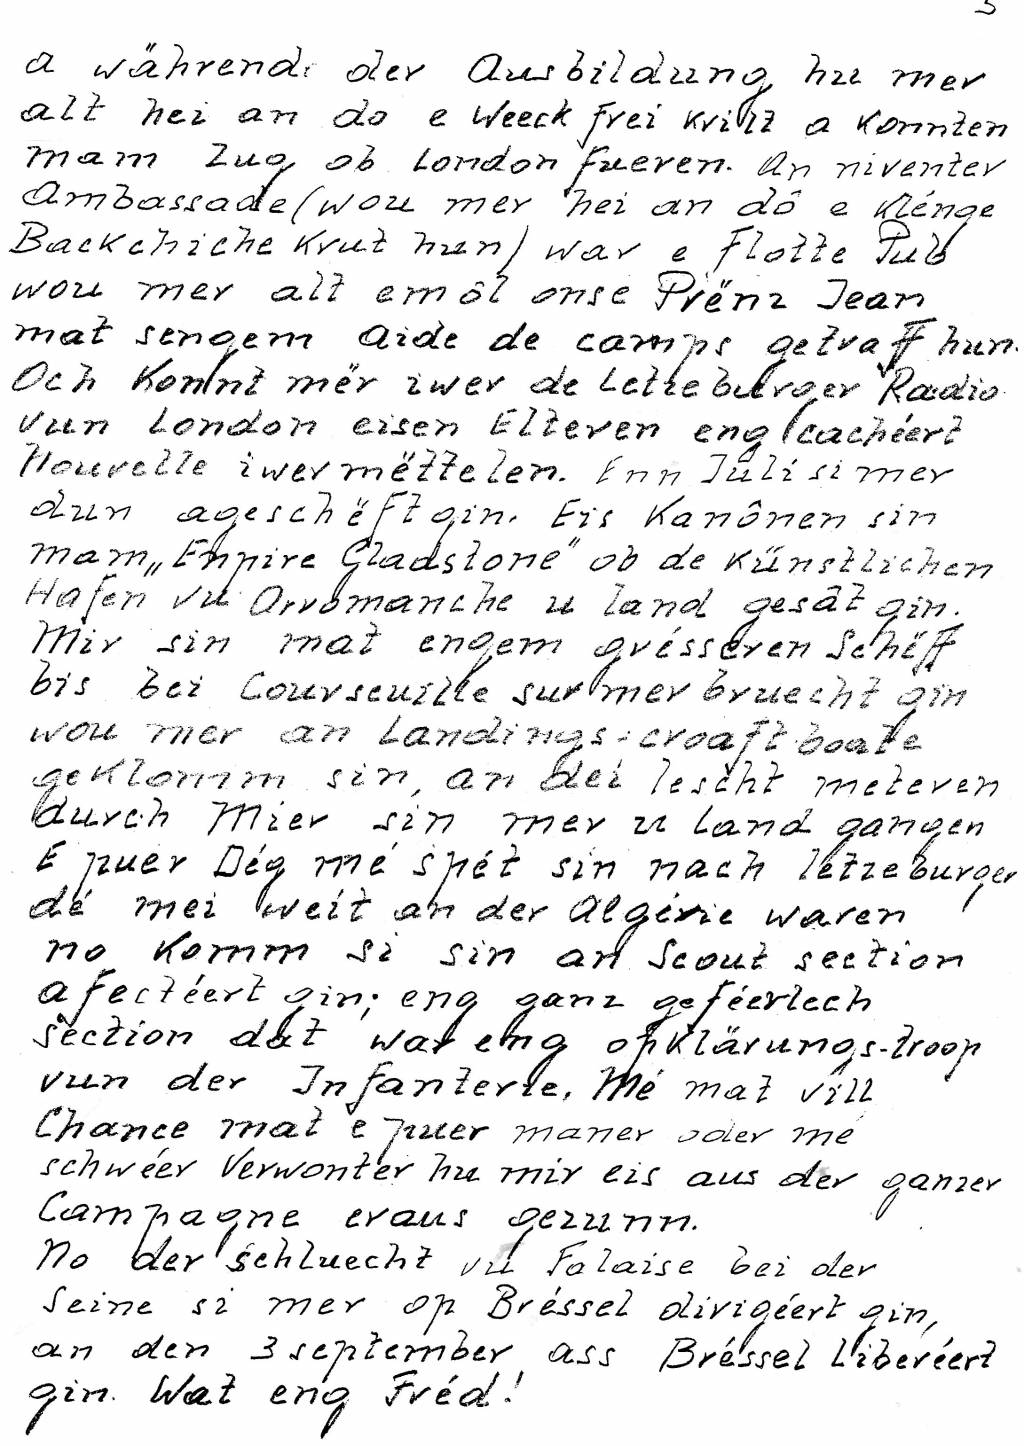 3
a während der Ausbildung hu mer
alt hei an do e Weeck frei kriit a konnten
mam Zug ob London fueren. An niventer
Ambassade (wou mer hei an dô e klénge
Backchiche krut hun) war e flotte Pub
wou mer alt emôl onse Prënz Jean
mat sengem Aide de camps getraff hun.
Och konnt mër iwer de Letzeburger Radio
vun London eisen Elteren eng cachéert
Nouvelle iwermëttelen. Enn Juli si mer
dun ageschëft gin. Eis Kanônen sin
mam „Empire Gladstone" ob de künstlichen
Hafen vu Arromanche u land gesât gin.
Mir sin mat engem grésseren Schëff
bis bei Courseuille sur mer bruecht gin
wou mer an Landings-croaft boate
geklomm sin, an déi lescht meteren
durch Mier sin mer u Land gangen
E puer Dég mé spét sin nach letzeburger
dé mei weit an der Algérie waren
no komm si sin an Scout section
afectéert gin; eng ganz geféerlech
section dat war eng opklärungs-troop
vun der Infanterie. Mé mat vill
Chance mat e puer maner oder mé
schwéer Verwonter hu mir eis aus der ganzer
Campagne eraus gezunn.
No der schluecht vu Falaise bei der
Seine si mer op Bréssel dirigéert gin,
an den 3 september ass Bréssel liberéert
gin. Wat eng Fréd!